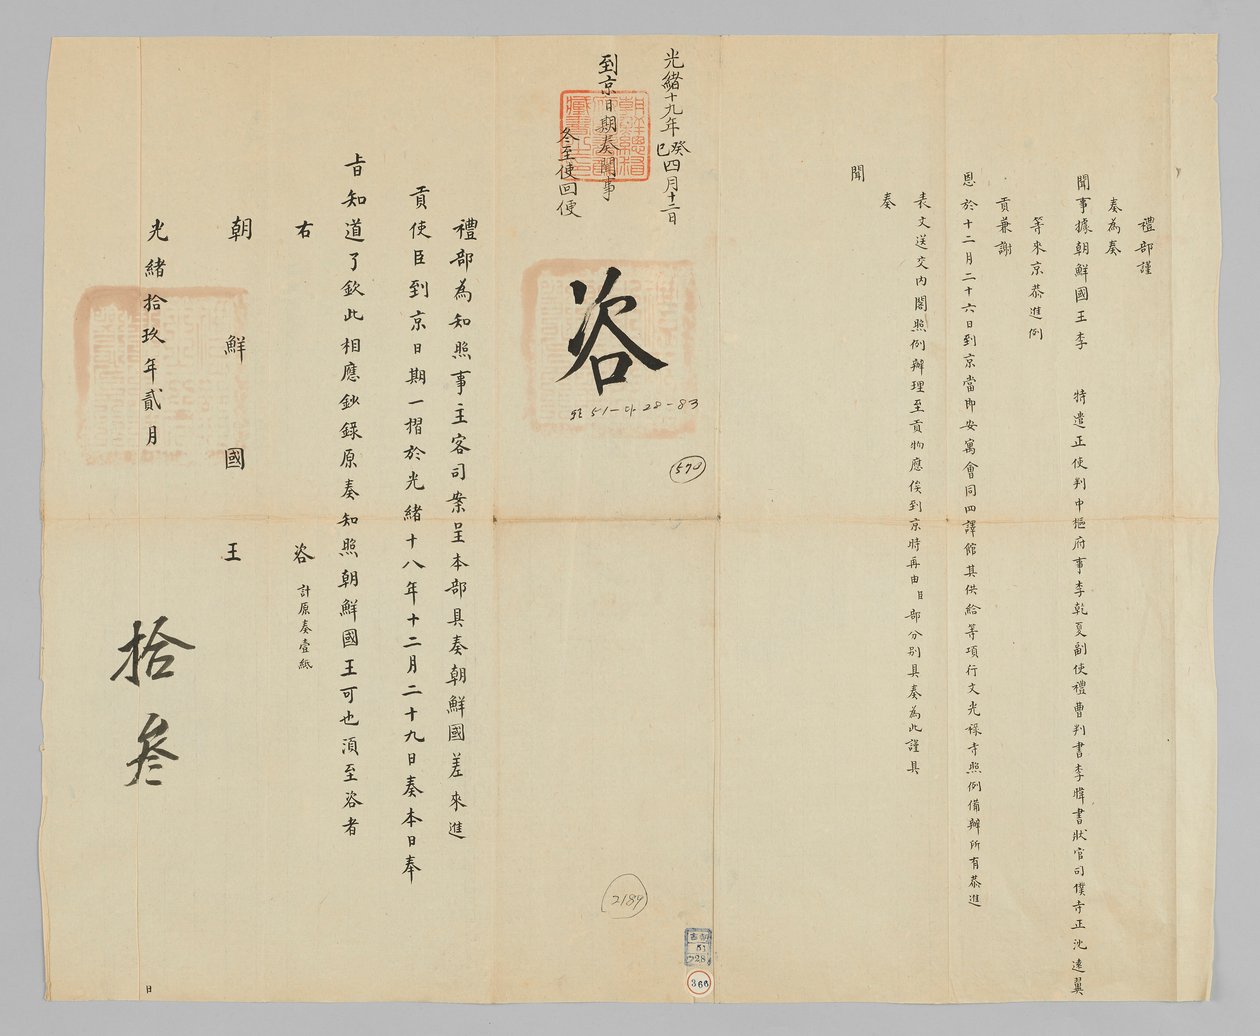 禮部謹
奏為奏
聞事據朝鮮國王李 特遣正使判中樞府事李乾夏副使禮曹判書李暐書狀官司僕寺正沈遠翼
等來京恭進例
貢兼謝
恩於十二月二十六日到京當即安寓會同四譯館其供給等項行文光祿寺照例備辦所有恭進
表文送交內閣照例辦理至貢物應俟到京時再由臣部分別具奏為此謹具
奏
聞
光緒十九年癸巳四月十二日
到京日期奏聞事
冬至使回便
咨
51-나-28-83
570
2184
51
나28
366
禮部為知照事主客司案呈本部具奏朝鮮國差來進
貢使臣到京日期一摺於光緒十八年十二月二十九日奏本日奉
旨知道了欽此相應鈔錄原奏知照朝鮮國王可也須至咨者
右 咨 計原奏壹紙
朝鮮國王
光緒拾玖年貳月 日
拾叄